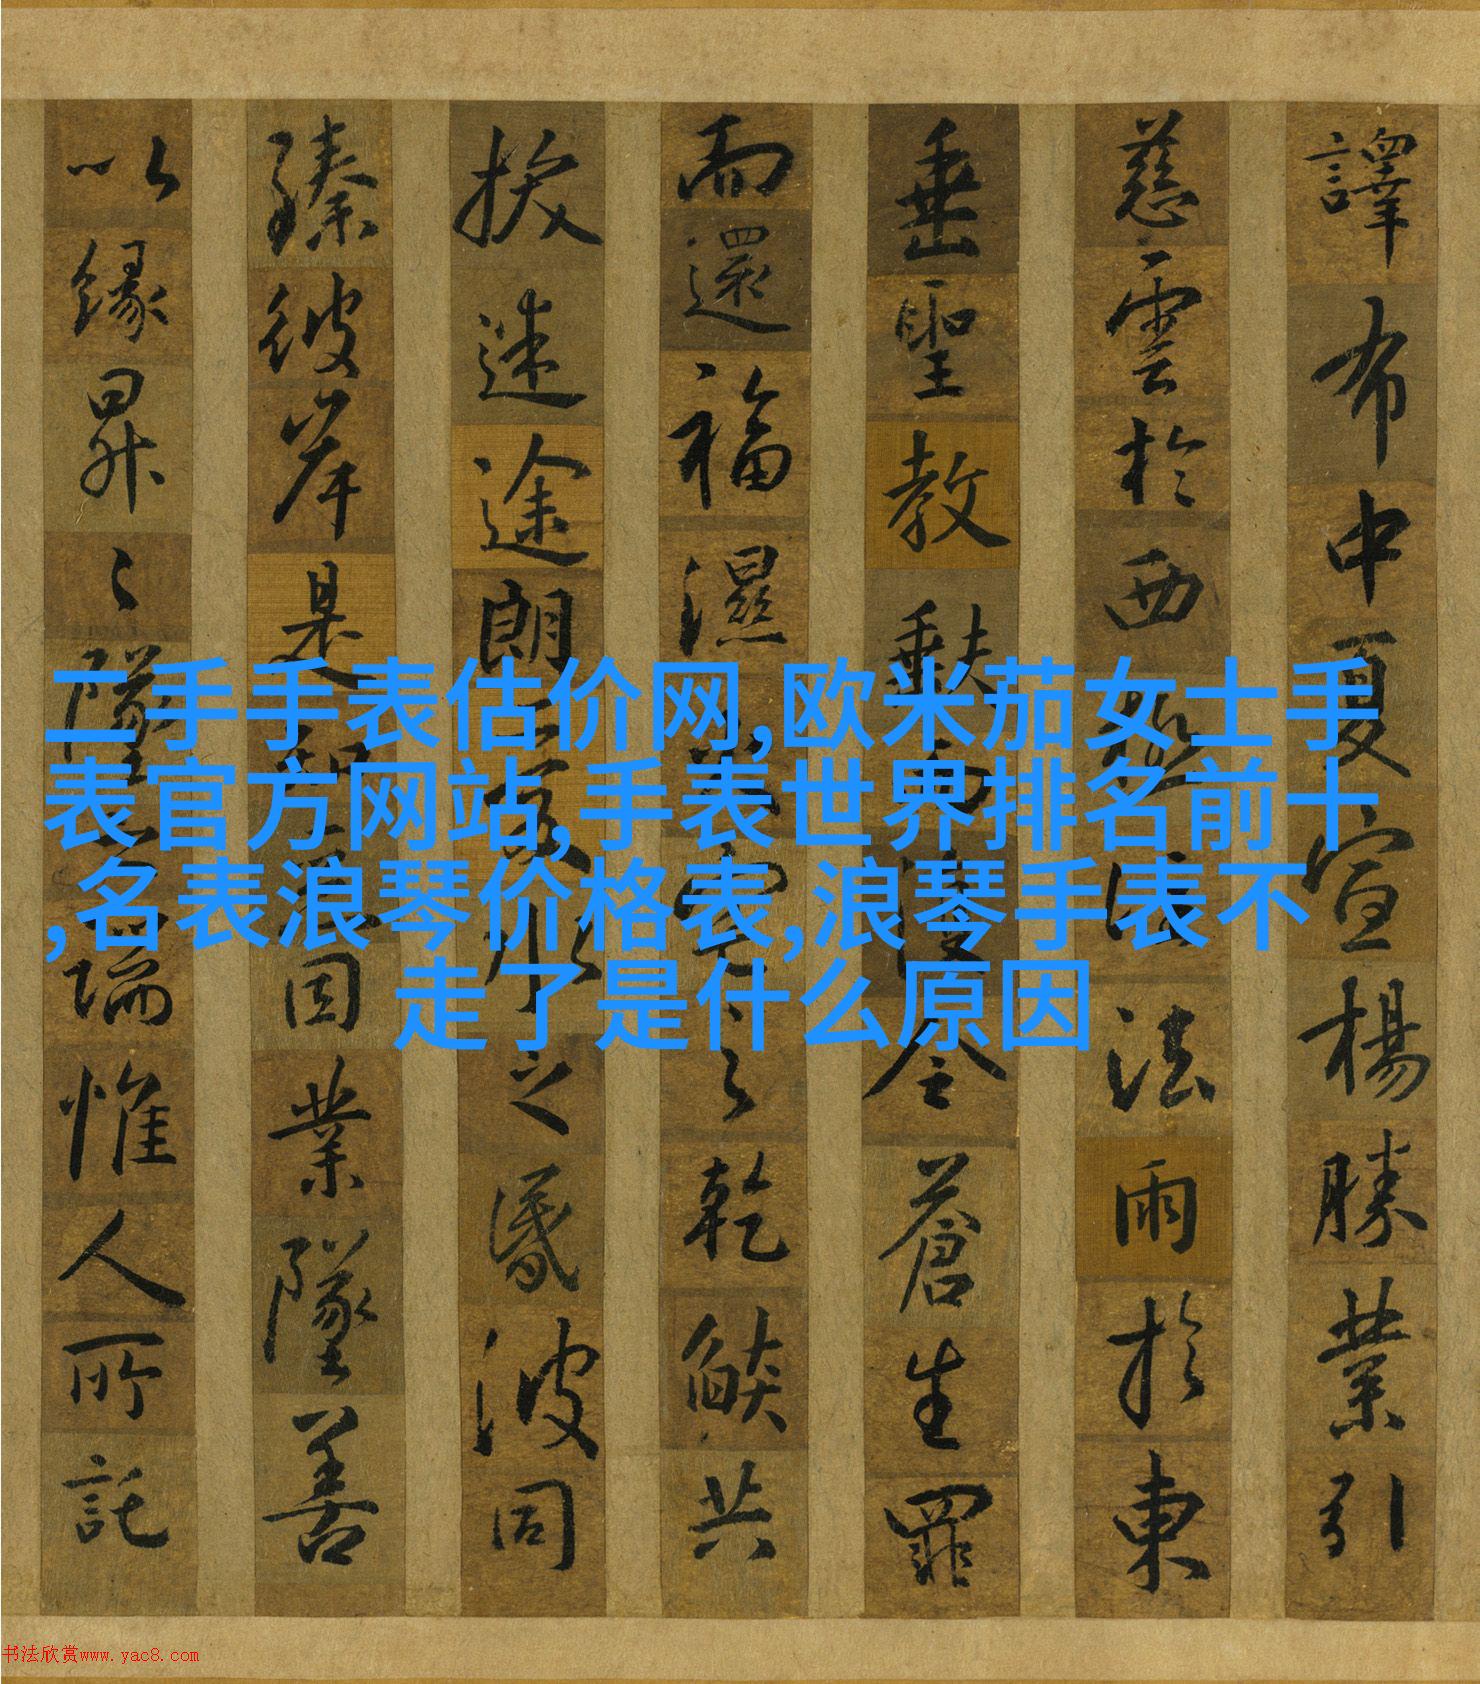 二手手表估价网,欧米茄女士手
表官方网站,手表世界排名前十
,名表浪琴价格表,浪琴手表不
走了是什么原因
譯布中夏宣楊勝業引
慈雲於西極注法雨於東
垂聖教缺而復全蒼生罪
而還福濕火宅之乾燄共
拔迷途朗愛水之昏波同
臻彼岸是知惡因業墜善
以緣昇〻墜之端惟人所託
书法欣赏www.yac8.com